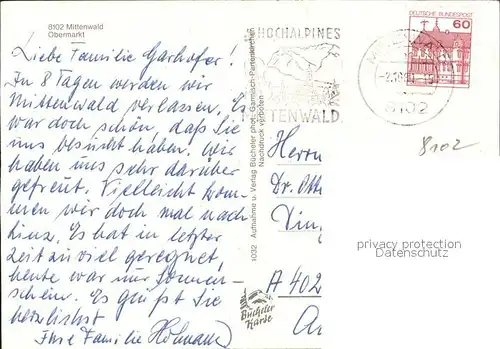 8102 Mittenwald
Obermarkt
Liebe Familie Garhofer!
In 8 Tagen werden wir
Mittenwald verlassen. Es
war doch schön, daß Sie
uns besucht haben. Wir
haben uns sehr darüber
gefreut. Vielleicht kom-
men wir doch mal nach
Linz. Es hat in letzter
Zeit zu viel geregnet,
heute war nur Sonnen-
schein. Es grüßt Sie
herzlichst
Ihre Familie
1032 Aufnahme u. Verlag Bücheler phot. Garmisch-Partenkirchen
Nachdruck verboten
HOCHALPINES
MITTENWALD
DEUTSCHE BUNDESPOST
60
8102
8102
Herrn
Dr. Otto
A 402
privacy protection
Datenschutz
Bücheler
Karte